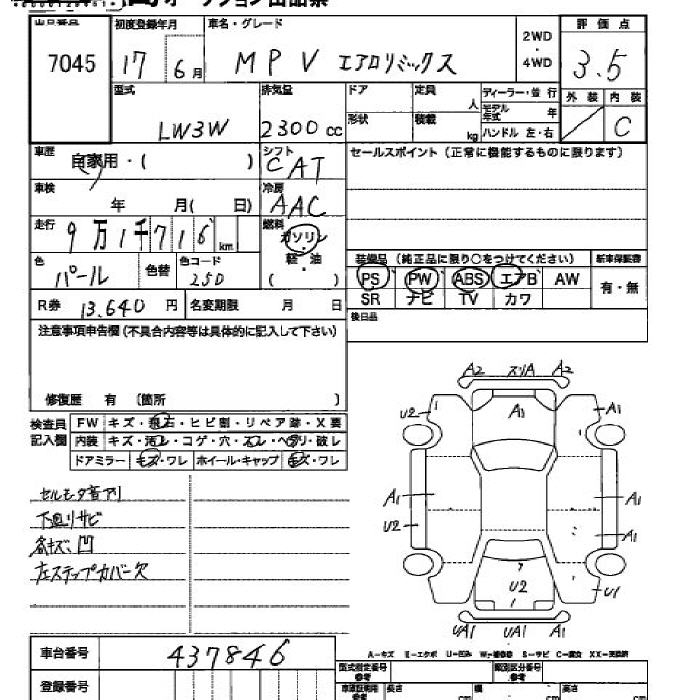 オークション出品票
出品番号 初度登録年月 車名・グレード 2WD・4WD 評価点
7045 17 6月 MPV エアロリミックス 3.5
型式 排気量 ドア 定員 人 ディーラー・並行 外装 内装
LW3W 2300cc 形状 積載 kg モデル年式 年 ハンドル 左・右 C
車歴 自家用・( ) シフト CAT セールスポイント(正常に機能するものに限ります)
車検 年 月( 日) 冷房 AAC
走行 9万1千716km 燃料 ガソリン・軽・油 ( )
色 パール 色替 色コード 25D 装備品(純正品に限り○をつけてください) 新車保証書
PS PW ABS エアB AW 有・無
SR ナビ TV カワ
R券 13,640円 名変期限 月 日 後日品
注意事項申告欄(不具合内容等は具体的に記入して下さい)
修復歴 有 [箇所 ]
検査員記入欄 FW キズ・飛石・ヒビ割・リペア跡・X要
内装 キズ・汚レ・コゲ・穴・スレ・ヘタリ・破レ
ドアミラー キズ・ワレ ホイール・キャップ キズ・ワレ
セルモータ音アリ
下廻りサビ
各キズ、凹
左ステップカバー欠
A2 スリA A2
U2 A1 A1
A1 A1
U2 A1
U2 U1
UA1 UA1 A1
A-キズ E-エクボ U-凹み W-補修跡 S-サビ C-腐食 XX-交換済
車台番号 437846
登録番号
型式指定番号 参考 類別区分番号 参考
長さ cm 幅 cm 高さ cm